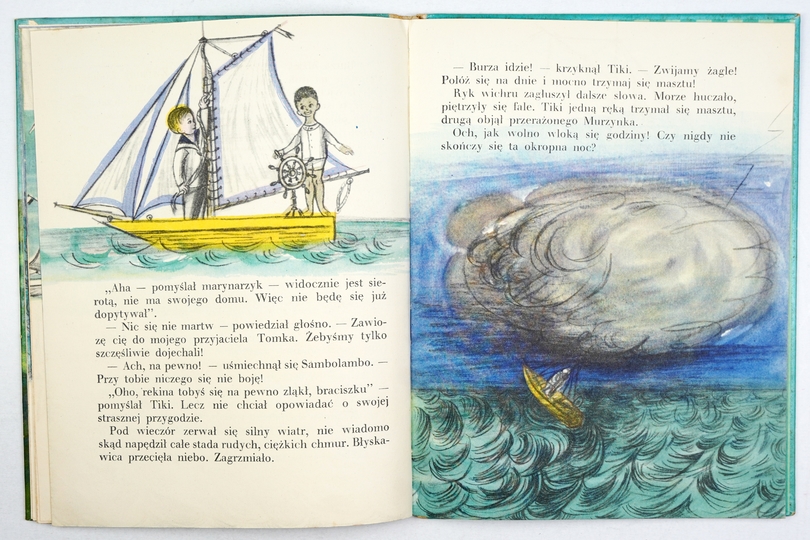 „Aha — pomyślał marynarzyk — widocznie jest sie-
rotą, nie ma swojego domu. Więc nie będę się już
dopytywał”.
— Nic się nie martw — powiedział głośno. — Zawio-
zę cię do mojego przyjaciela Tomka. Żebyśmy tylko
szczęśliwie dojechali!
— Ach, na pewno! — uśmiechnął się Sambolambo. —
Przy tobie niczego się nie boję!
„Oho, rekina tobyś się na pewno zląkł, braciszku” —
pomyślał Tiki. Lecz nie chciał opowiadać o swojej
strasznej przygodzie.
Pod wieczór zerwał się silny wiatr, nie wiadomo
skąd napędził całe stada rudych, ciężkich chmur. Błyska-
wica przecięła niebo. Zagrzmiało.
— Burza idzie! — krzyknął Tiki. — Zwijamy żagle!
Połóż się na dnie i mocno trzymaj się masztu!
Ryk wichru zagłuszył dalsze słowa. Morze huczało,
piętrzyły się fale. Tiki jedną ręką trzymał się masztu,
drugą objął przerażonego Murzynka.
Och, jak wolno wloką się godziny! Czy nigdy nie
skończy się ta okropna noc?